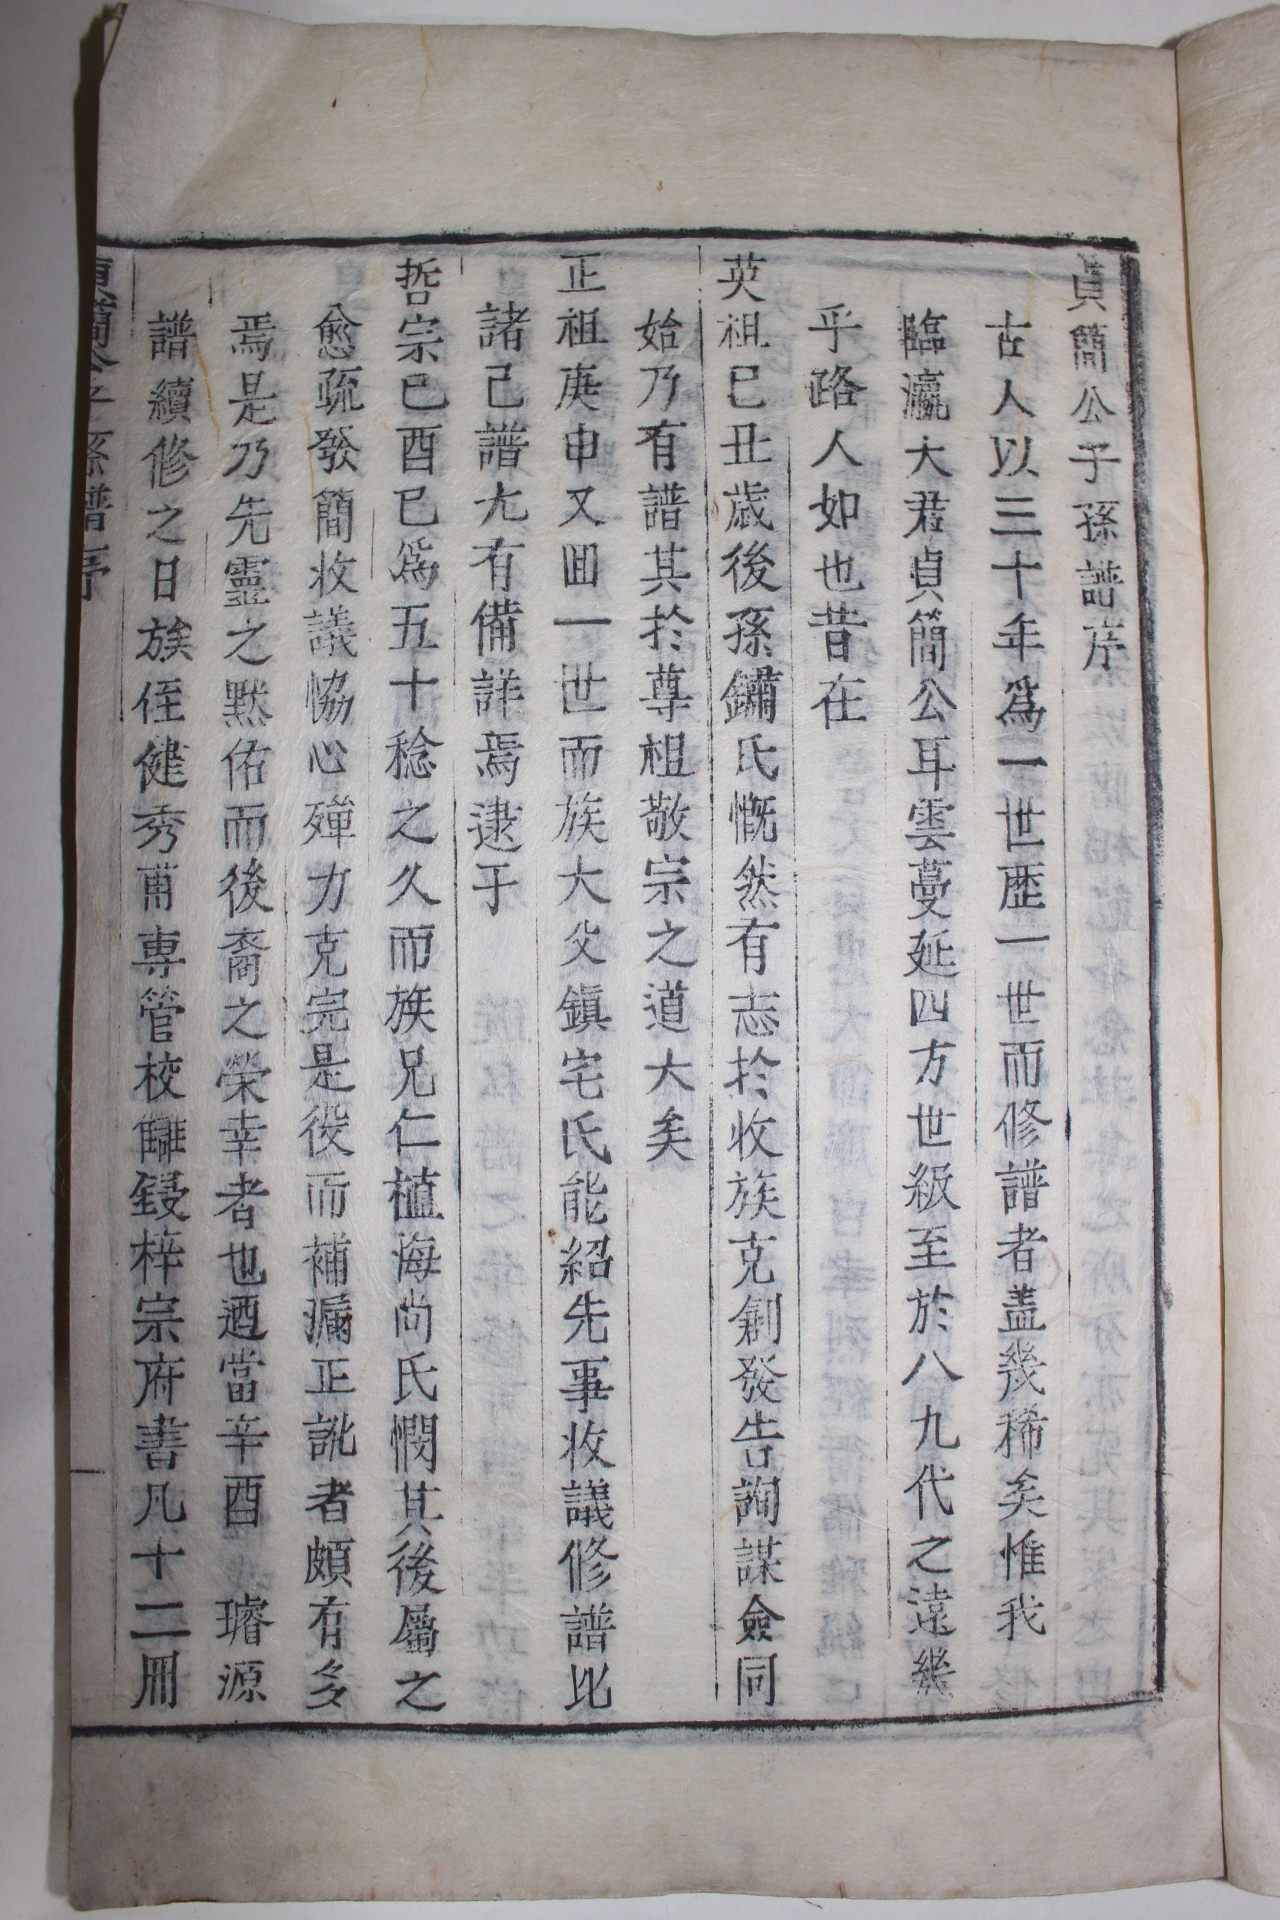 貞簡公子孫譜序
古人以三十年爲一世歷一世而修譜者盖幾稀矣惟我
臨瀛大君貞簡公耳雲蔓延四方世級至於八九代之遠幾
乎路人如也昔在
英祖已丑歲後孫鏽氏慨然有志於收族克創發告詢謀僉同
始乃有譜其於尊祖敬宗之道大矣
正祖庚申又回一世而族大父鎭宅氏能紹先事收議修譜比
諸己譜尤有備詳焉逮于
哲宗已酉已爲五十稔之久而族兄仁植海尚氏憫其後屬之
愈疏發簡收議恊心殫力克完是役而補漏正訛者頗有多
焉是乃先靈之黙佑而後裔之榮幸者也迺當辛酉 璿源
譜續修之日族侄健秀甫專管校讎鋟梓宗府書凡十二冊
貞簡公子孫譜序
一